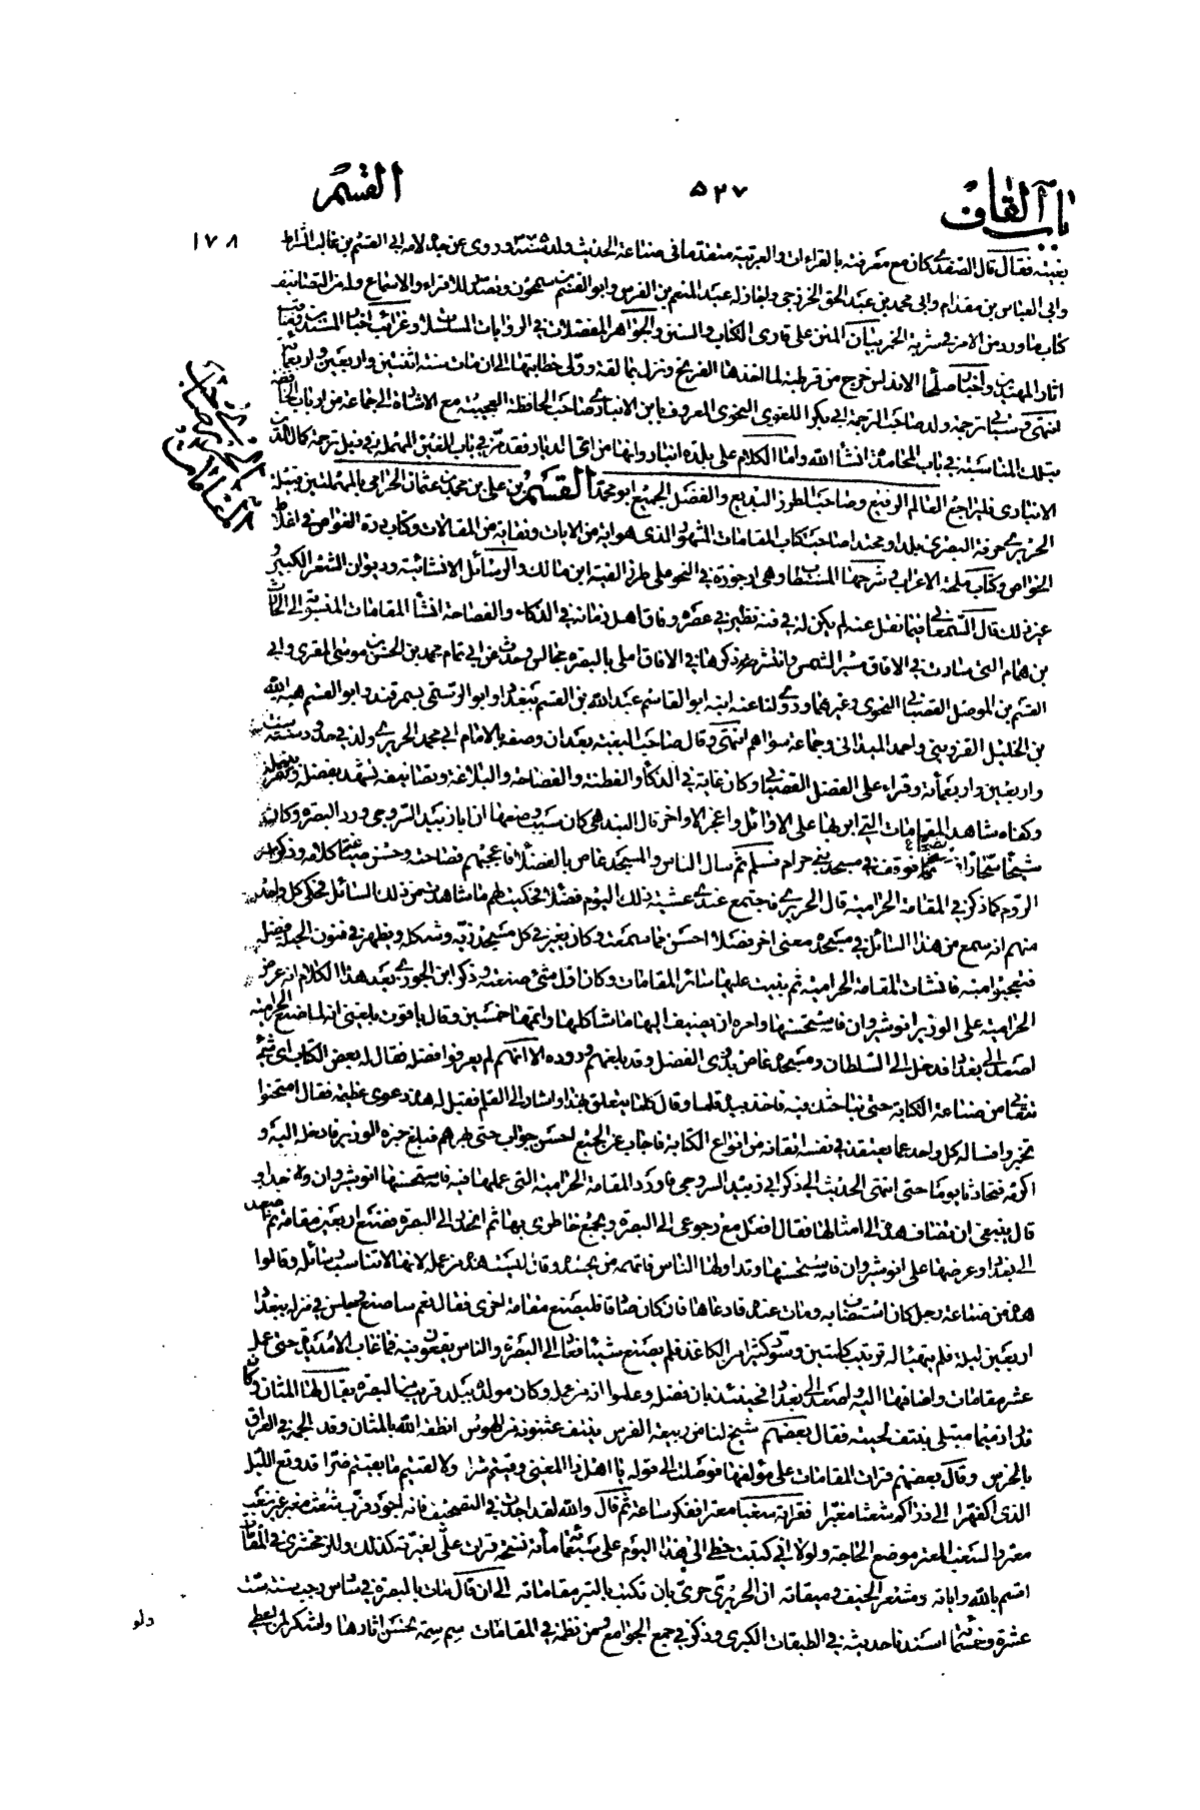 باب القاف ٥٢٧ القسم
١٧٨
بغيته فقال قال الصفدي كان مع معرفته بالقراءات والعربية متقدما في صناعة الحديث ولد سنة وروى عن جده لامه ابي القسم بن غالب الشراط
وابي العباس بن مقدام وابي محمد بن عبد الحق الخزرجي واجاز له عبد المنعم بن الفرس وابو القسم بن سمحون وتصدر للاقراء والاسماع وله من التصانيف
كتاب ما ورد من الامر في شربة الخمر بيان المنن على قارئ الكتاب والسنن والجواهر المفصلات في الروايات المسلسلات وغرائب اخبار المسندين ومناقب
اثار المهتدين واخبار صلحاء الاندلس خرج من قرطبة لما اخذها الفرنج ونزل بمالقة وولى خطابتها الى ان مات سنة اثنتين واربعين واربعمائة
انتهى وسياتي ترجمة ولد صاحب الترجمة ابي بكر اللغوي النحوي المعروف بابن الانباري صاحب الحافظة العجيبة مع الاشارة الى جماعة من ارباب الحافظة
بتلك المناسبة في باب المحامدة انشأ الله واما الكلام على بلدة انبار وانها من اي البلاد فقد مر في باب العين المهملة في ذيل ترجمة كمال الدين
الانباري فليراجع العالم الرفيع وصاحب الطرز البديع والفضل الجميع ابو محمد القسم بن علي بن محمد بن عثمان الحرامي بالمهملتين قبيلة
الحريري حرفة البصري بلدا ومحتدا صاحب كتاب المقامات المشهور الذي هو اية من الايات ونقاية من المقالات وكتاب درة الغواص في اغلاط
الخواص وكتاب ملحة الاعراب وشرحها المستطاب وهي ارجوزة في النحو على طرز الفية ابن مالك والرسائل الانشائية وديوان الشعر الكبير و
غير ذلك قال السمعاني فيما نقل عنه لم يكن له في فنه نظير في عصره وفاق اهل زمانه في الذكاء والفصاحة انشأ المقامات المنسوبة الى الحارث
بن همام التي سارت في الافاق مسير الشمس وانتشر ذكرها في الافاق املى بالبصرة مجالس وحدث عن ابي تمام محمد بن الحسن بن موسى المقري وابي
القسم بن الموصل القصباني النحوي وغيرهما وروى لنا عنه ابنه ابو القاسم عبد الله بن القسم ببغداد وابو الرستمي بسمرقند وابو القسم هبة الله
بن الخليل القزويني واحمد الميداني وجماعة سواهم انتهى وقال صاحب البغية بعد ان وصفه بالامام ابي محمد الحريري ولد في حدود سنة ست
واربعين واربعمأة وقراء على الفضل القصباني وكان غاية في الذكاء والفطنة والفصاحة والبلاغة وتصانيفه تشهد بفضله وتقر بنبله
وكفاه شاهدا المقامات التي ابر بها على الاوائل واعجز الاواخر قال البندهي كان سبب وضعها ان ابا زيد السروجي ورد البصرة وكان
شيخا شحاذا فوقف في مسجد بني حرام فسلم ثم سال الناس والمسجد غاص بالفضلاء فاعجبهم فصاحته وحسن صياغة كلامه وذكر اسر
الروم كما ذكر في المقامة الحرامية قال الحريري فاجتمع عندي عشية ذلك اليوم فضلاء فحكيت لهم ما شاهدت من ذلك السائل فحكى كل واحد
منهم انه سمع من هذا السائل في مسجده معنى اخر فضلا احسن مما سمعت وكان يغير في كل مسجد زيه وشكله ويظهر في فنون الحيلة فضله
فتعجبوا منه فانشات المقامة الحرامية ثم بنيت عليها سائر المقامات وكان اول شئ صنعته وذكر ابن الجوزي بعد هذا الكلام انه عرض
الحرامية على الوزير انوشروان فاستحسنها وامره ان يضيف اليها ما شاكلها واتمها خمسين وقال ياقوت بلغني انه لما صنع الحرامية
اصعد الى بغداد فدخل الى السلطان ومسجده غاص بذوي الفضل وقد بلغهم وروده الا انهم لم يعرفوا فضله فقال له بعض الكتاب اي شئ
تتعانى من صناعة الكتابة حتى نباحثك فيه فاخذ بيده قلما وقال كلما يتعلق بهذا واشار الى القلم فقيل له هذه دعوى عظيمة فقال امتحنوا
تخبروا فساله كل واحد عما يعتقد في نفسه اتقانه من انواع الكتابة فاجاب عن الجميع احسن جواب حتى بهرهم فبلغ خبره الوزير فادخله اليه و
اكرمه فتحادثا يوما حتى انتهى الحديث الى ذكر ابي زيد السروجي فاورد المقامة الحرامية التي عملها فيه فاستحسنها انوشروان جدا و
قال ينبغي ان تضاف هذه الى امثالها فقال افعل مع رجوعي الى البصرة وتجمع خاطري بها ثم انحدر الى البصرة فصنع اربعين مقامة ثم اصعد
الى بغداد وعرضها على انوشروان فاستحسنها وتداولها الناس فاتهمه من يحسده وقال ليست هذه من عمله لانها لا تناسب رسائله وقالوا
هذه من صناعة رجل كان استضاف به ومات عنده فادعاها فان كان صادقا فليصنع مقامة اخرى فقال نعم ساصنع وجلس في منزله ببغداد
اربعين ليلة فلم يتهيأ له ترتيب كلمتين وسود كثيرا من الكاغذ فلم يصنع شيئا فعاد الى البصرة والناس يقعون فيه فما غاب الا مديدة حتى عمل
عشر مقامات واضافها اليه واصعد الى بغداد فحينئذ بان فضله وعلموا انه من عمله وكان مولده ببلد قريب من البصرة يقال لها المثان وكان
قذرا ذميما مبتلى بنتف لحيته فقال بعضهم شيخ لنا من ربيعة الفرس ينتف عثنونه من الهوس انطقه الله بالمثان وقد الجمه في العراق
بالخرس وقال بعضهم قرات المقامات على مؤلفها فوصلت الى قوله يا اهل ذا المغنى وقيتم شرا ولا لقيتم ما بقيتم ضرا قد دفع الليل
الذي اكفهرا الى ذراكم شعثا مغبرا فقراته سغبا معترا ففكر ساعة ثم قال والله لقد اجدت في التصحيف فانه اجود فرب شعث مغبر غير سغب
معتر والسغب المعتر موضع الحاجة ولولا اني كتبت خطي الى هذا اليوم على سبعمأة نسخة قرئت علي لغيرته كذلك وللزمخشري في المقامات
اقسم بالله واياته ومشعر الخيف وميقاته ان الحريري حري بان نكتب بالتبر مقاماته الى ان قال مات بالبصرة في سادس رجب سنة ست
عشرة وخمسمائة اسندنا حديثه في الطبقات الكبرى وذكر في جمع الجوامع ومن نظمه في المقامات سم سمة تحسن اثارها واشكر لمن يعطي
ولو